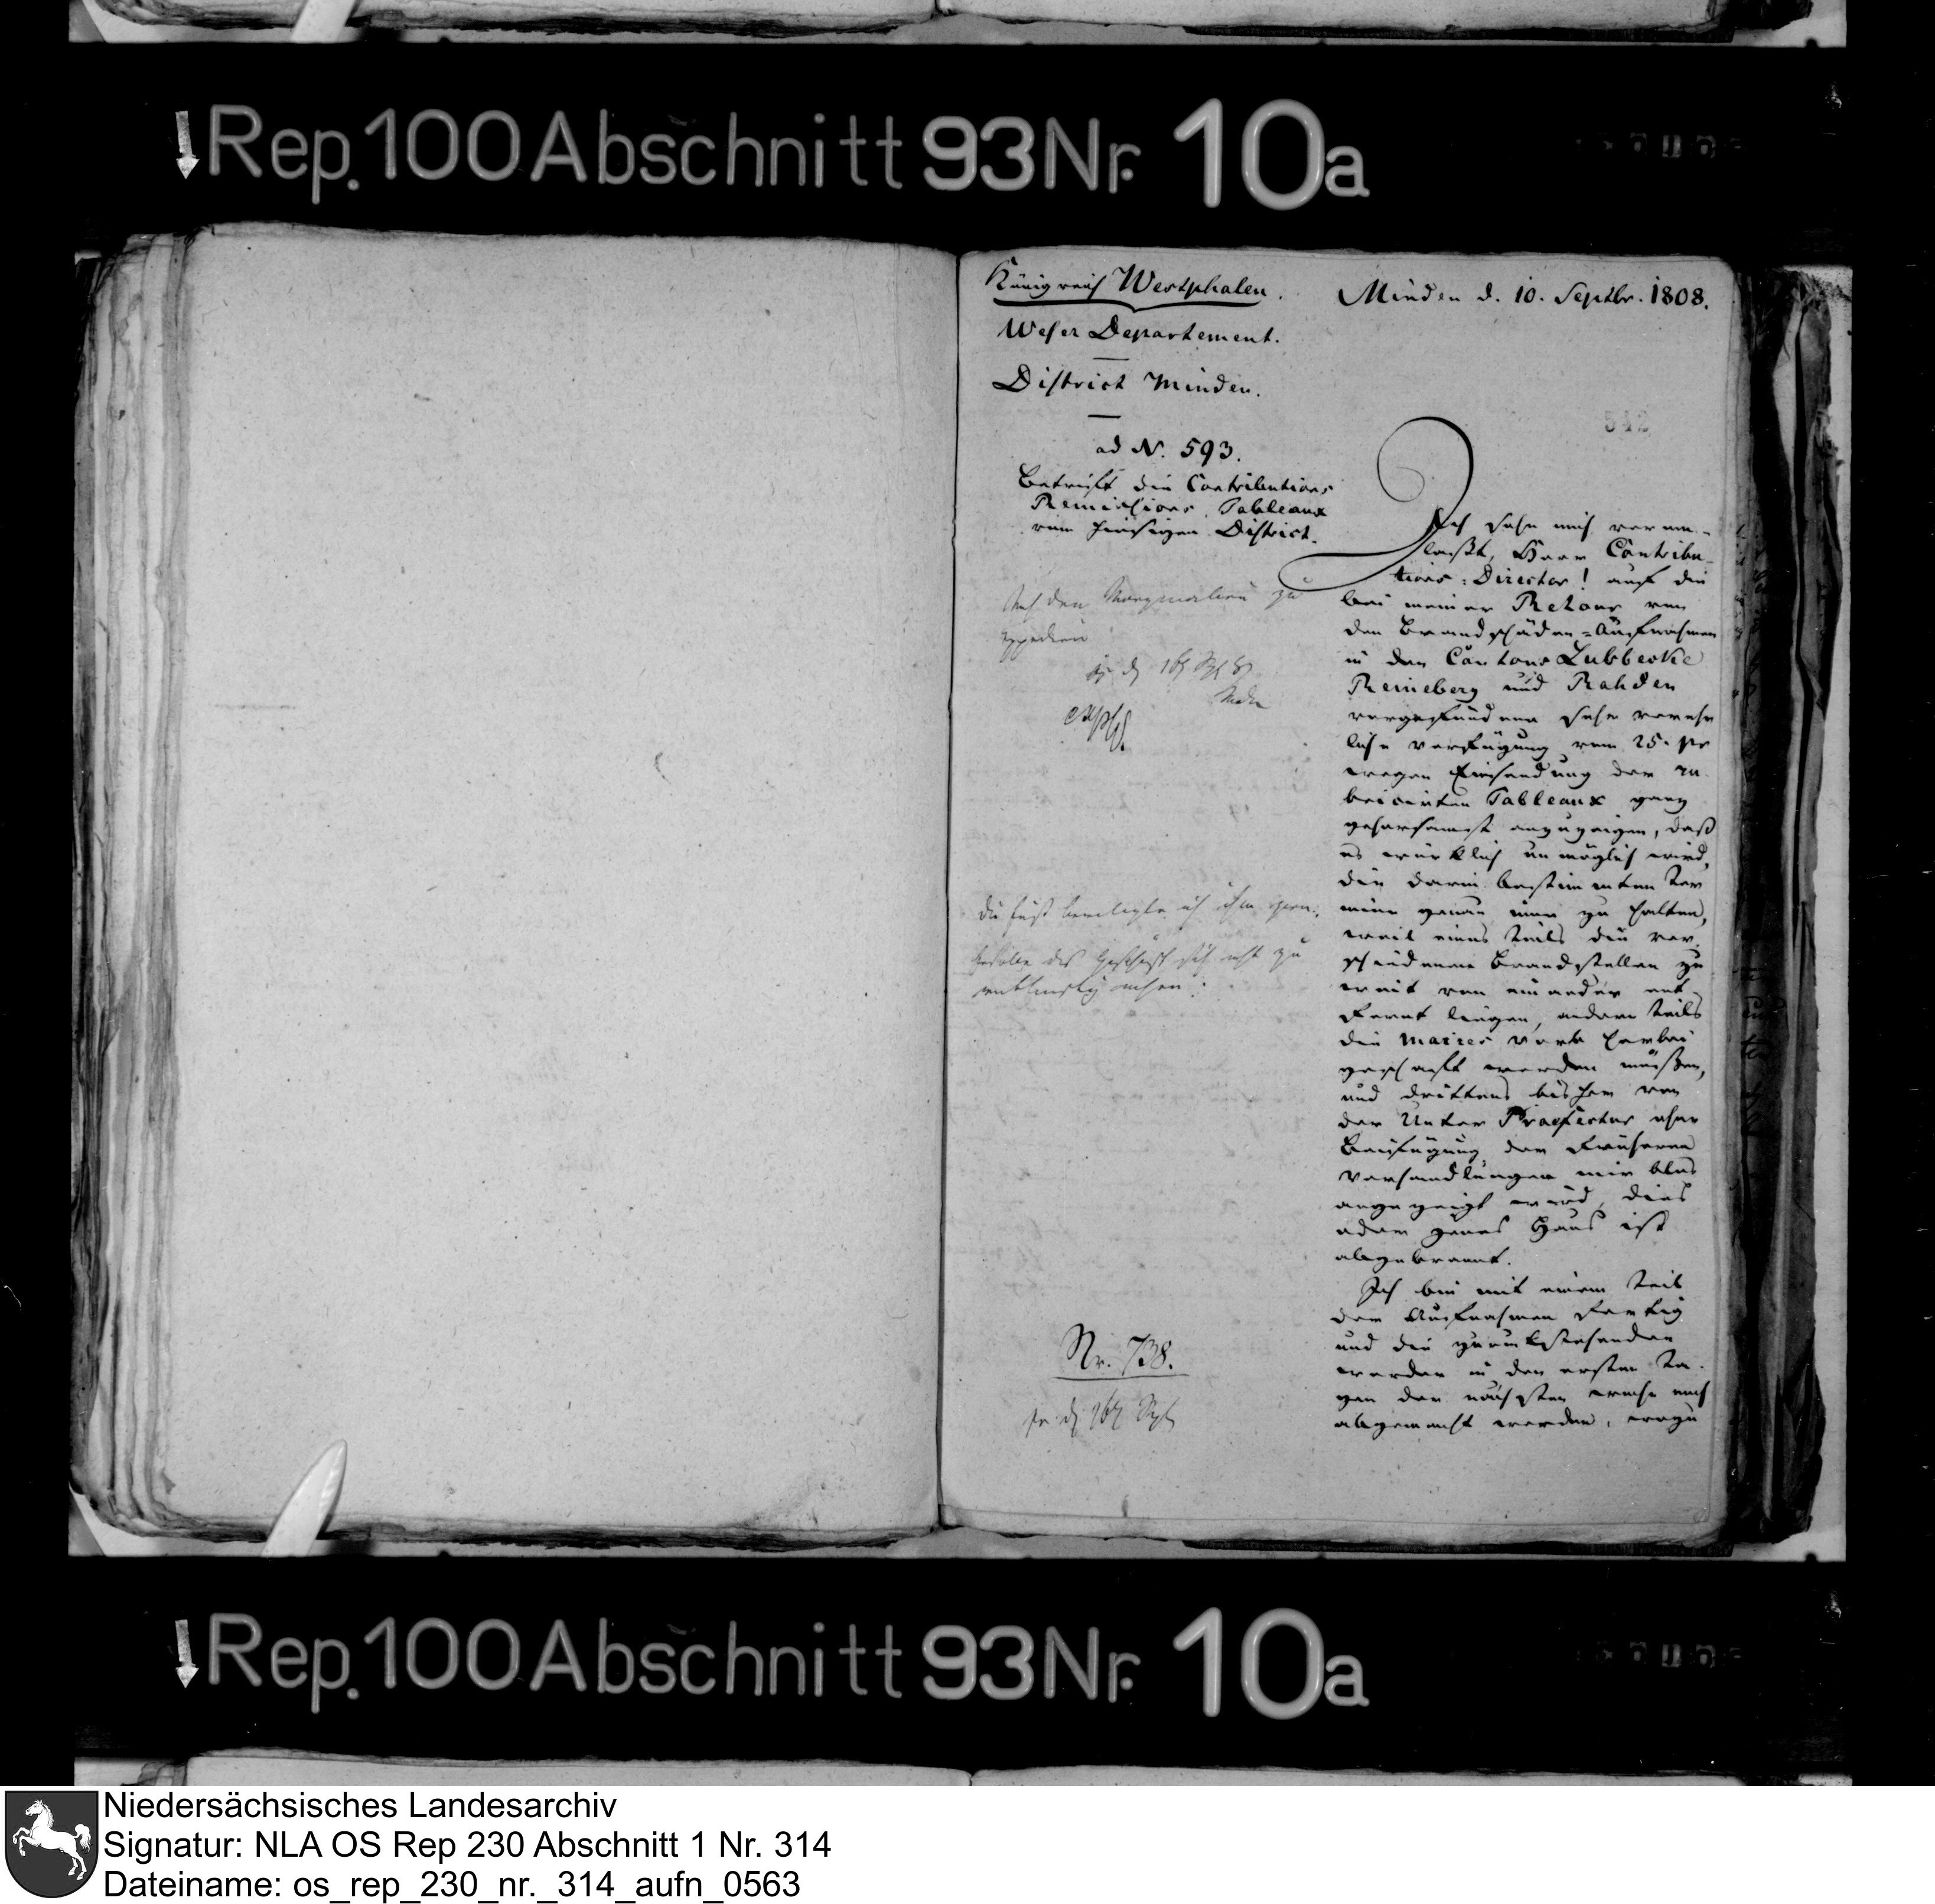 Rep. 100 Abschnitt 93 Nr. 10a
Königreich Westphalen.
Weser Departement.
District Minden.
ad N. 593.
Betrift die Contributions
Remissions Tableaux
vom hiesigen District.
Auf den Marginalien zu
expedien
Nr. 738.
Minden d. 10. Septbr. 1808.
542
Ich sehe mich veran-
laßt, Herr Contribu-
tions-Director! auf die
bei meiner Retour von
den Brandschäden-Aufnahmen
in den Cantons Lubbecke
Reineberg und Rahden
vorgefundene sehr verehr
liche Verfügung vom 25. pr
wegen Einsendung der ru
bricirten Tableaux ganz
gehorsamst anzuzeigen, daß
es würklich unmöglich wird,
die darin bestimmten Ter
mine genau inne zu halten,
weil eines teils die ver
schiedenen Brandstellen zu
weit von einander ent-
fernt liegen, andern teils
die Maires herbei
geschaft werden müßen,
und drittens bisher von
der Unter Praefectur ohne
Beifügung der früheren
Verhandlungen mir blos
angezeigt wird, dies
oder jenes Haus ist
abgebrannt.
Ich bin mit einem Teil
der Aufnahmen fertig
und die zurückstehenden
werden in den ersten Ta-
gen der nächsten Woche auch
abgemacht werden, wozu
Rep. 100 Abschnitt 93 Nr. 10a
Niedersächsisches Landesarchiv
Signatur: NLA OS Rep 230 Abschnitt 1 Nr. 314
Dateiname: os_rep_230_nr._314_aufn_0563